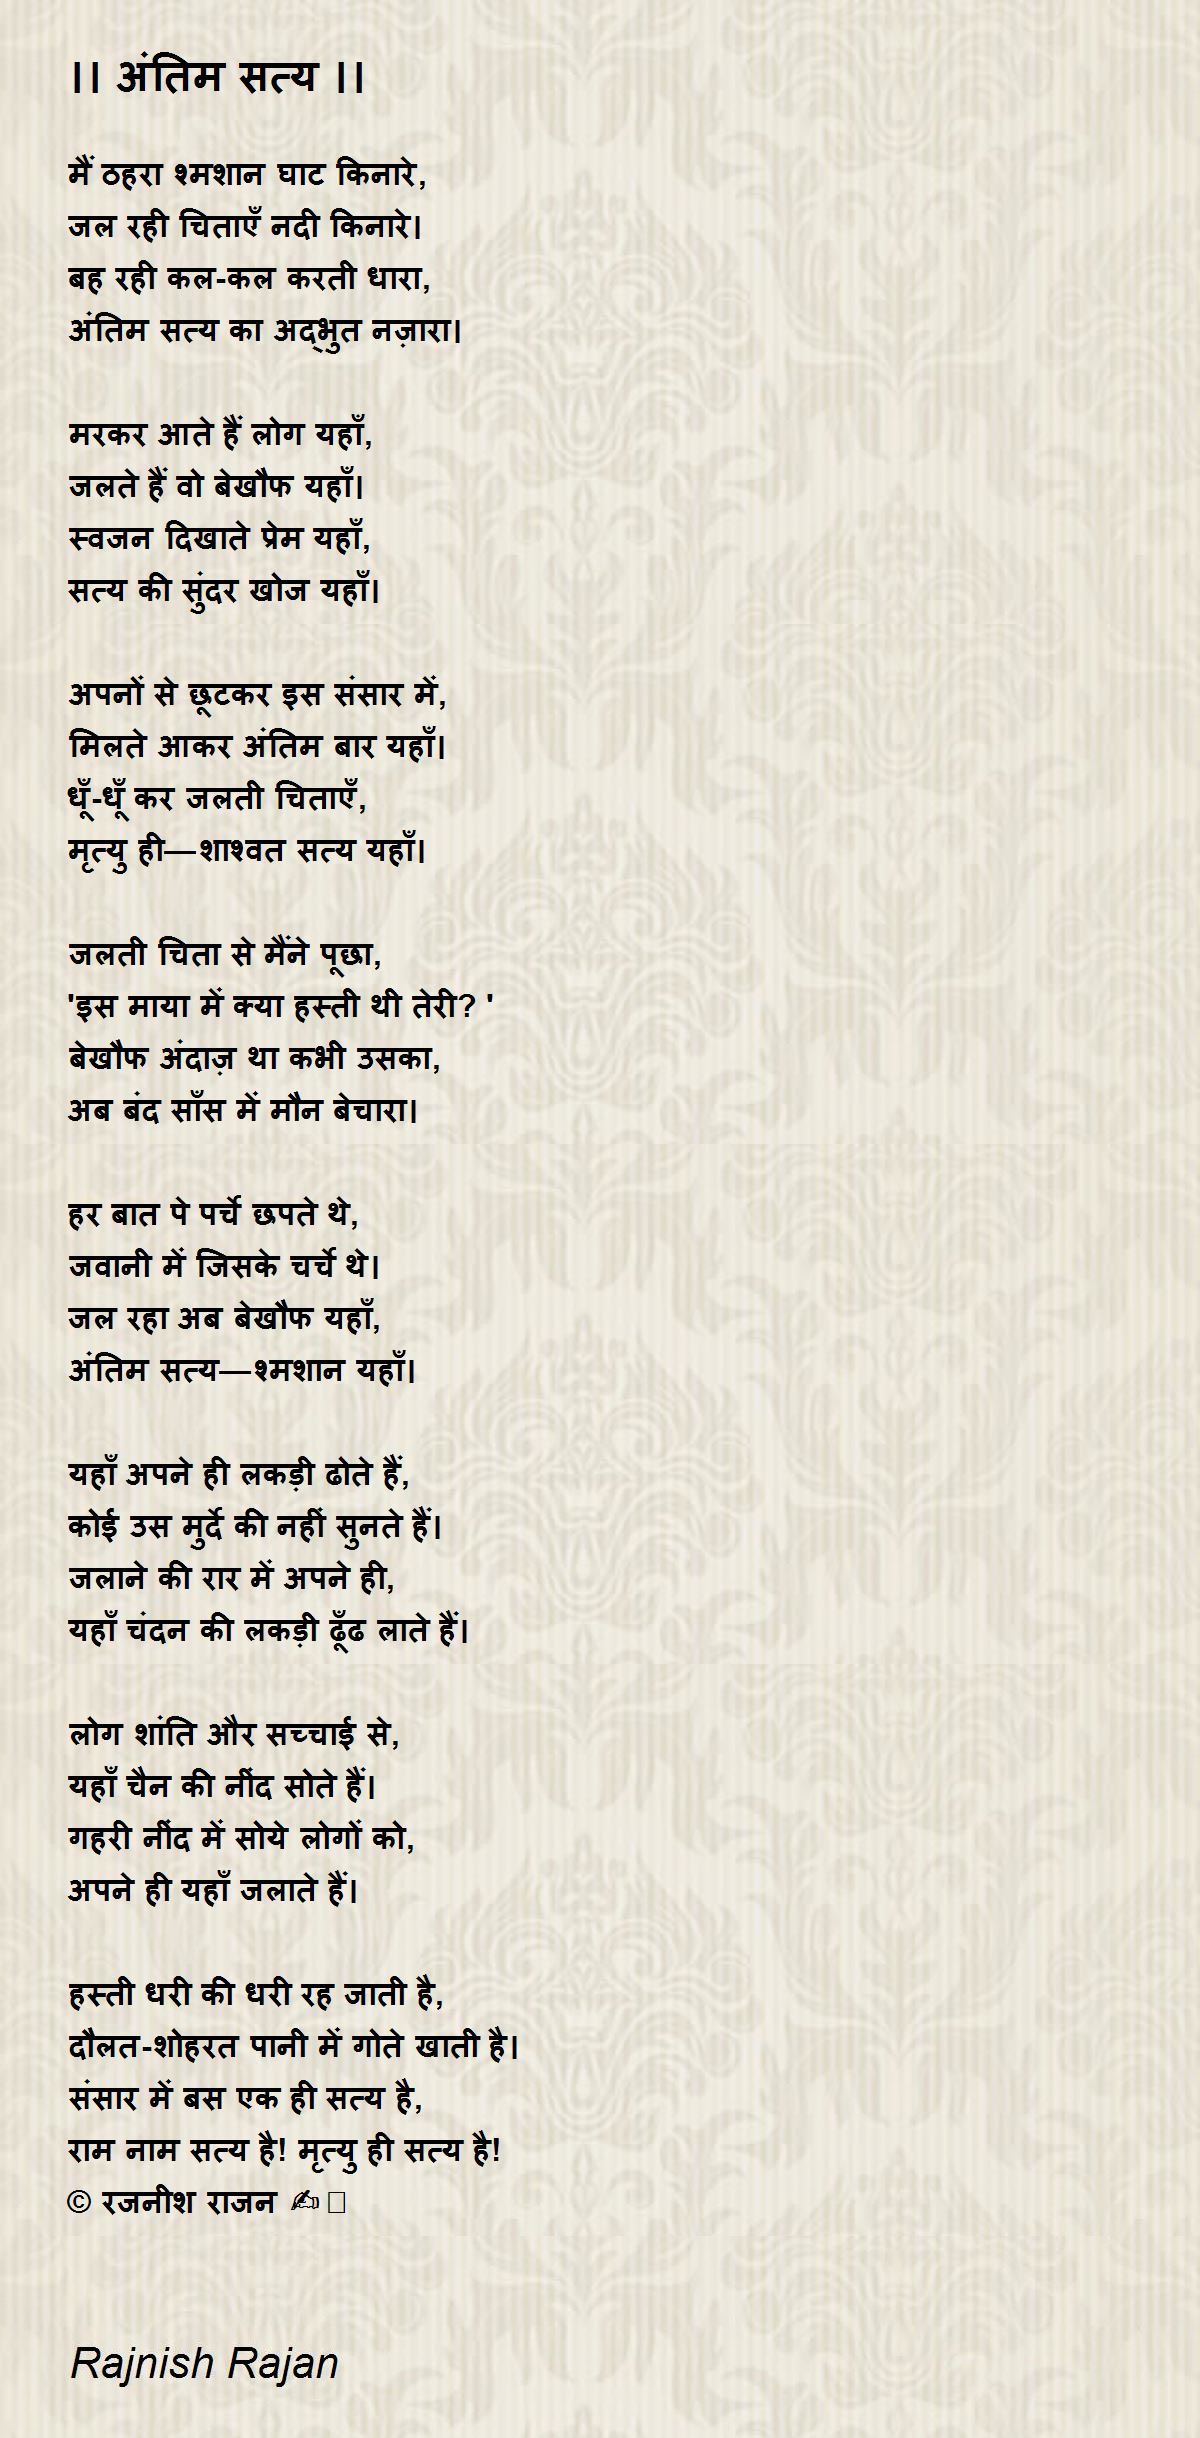 ।। अंतिम सत्य ।।
मैं ठहरा श्मशान घाट किनारे,
जल रही चिताएँ नदी किनारे।
बह रही कल-कल करती धारा,
अंतिम सत्य का अद्भुत नज़ारा।
मरकर आते हैं लोग यहाँ,
जलते हैं वो बेखौफ यहाँ।
स्वजन दिखाते प्रेम यहाँ,
सत्य की सुंदर खोज यहाँ।
अपनों से छूटकर इस संसार में,
मिलते आकर अंतिम बार यहाँ।
धूँ-धूँ कर जलती चिताएँ,
मृत्यु ही—शाश्वत सत्य यहाँ।
जलती चिता से मैंने पूछा,
'इस माया में क्या हस्ती थी तेरी? '
बेखौफ अंदाज़ था कभी उसका,
अब बंद साँस में मौन बेचारा।
हर बात पे पर्चे छपते थे,
जवानी में जिसके चर्चे थे।
जल रहा अब बेखौफ यहाँ,
अंतिम सत्य—श्मशान यहाँ।
यहाँ अपने ही लकड़ी ढोते हैं,
कोई उस मुर्दे की नहीं सुनते हैं।
जलाने की रार में अपने ही,
यहाँ चंदन की लकड़ी ढूँढ लाते हैं।
लोग शांति और सच्चाई से,
यहाँ चैन की नींद सोते हैं।
गहरी नींद में सोये लोगों को,
अपने ही यहाँ जलाते हैं।
हस्ती धरी की धरी रह जाती है,
दौलत-शोहरत पानी में गोते खाती है।
संसार में बस एक ही सत्य है,
राम नाम सत्य है! मृत्यु ही सत्य है!
© रजनीश राजन ✍
Rajnish Rajan